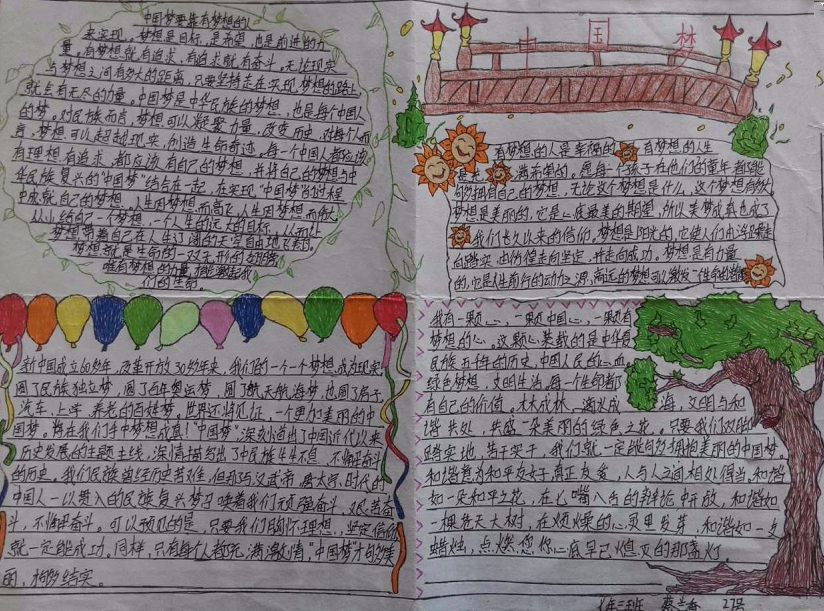 中国梦要靠有梦想的人
来实现。梦想是目标,是希望,也是前进的力
量。有梦想就有追求,有追求就有奋斗。无论现实
与梦想之间有多大的距离,只要坚持走在实现梦想的路上,
就会有无尽的力量。中国梦是中华民族的梦想,也是每个中国人
的梦。对民族而言,梦想可以凝聚力量,改变历史,对每个人而
言,梦想可以超越现实,创造生命奇迹。每一个中国人都应该
有理想有追求,都应该有自己的梦想,并将自己的梦想与中
华民族复兴的“中国梦”结合在一起,在实现“中国梦”的过程
中成就自己的梦想,人生因梦想而高飞,人生因梦想而伟大,
从小给自己一个梦想,一个人生的远大的目标,从而让
梦想带着自己在人生辽阔的天空自由地飞翔。
梦想就是生命的一双无形的翅膀
唯有梦想的力量,才能激起我
们的生命。
中 国 梦
有梦想的人是幸福的 有梦想的人生
是 满希望的。愿每一个孩子在他们的童年都能
够拥有自己的梦想,无论这个梦想是什么,这个梦想有多大
梦想是美丽的,它是心底最美的期望,所以美梦成真也成了
我们长久以来的信仰。梦想是阳光的,它使人们由浮躁走
向踏实,由彷徨走向坚定,并走向成功。梦想是有力量
的,它是人生前行的动力之源,高远的梦想可以激发
新中国成立60多年,改革开放30多年来,我们的一个个梦想,成为现实
圆了民族独立梦,圆了百年奥运梦,圆了航天航海梦,也圆了房子
汽车、上学、养老的百姓梦。世界还将见证,一个更加美丽的中
国梦。将在我们手中梦想成真!“中国梦”深刻道出了中国近代以来
历史发展的主题主线,深情描绘出了中华民族生生不息、不懈奋斗
的历史。我们民族曾经历苦难,但那与汉武帝、唐太宗时代的
中国人一以贯入的民族复兴梦召唤着我们顽强奋斗、艰苦奋
斗,不懈奋斗。可以预见的是,只要我们胸怀理想,坚定信仰
就一定能成功。同样,只有每个人都充满激情,“中国梦”才够美
丽,够结实。
我有一颗心,一颗中国心,一颗有
梦想的心。这颗心装载的是中华
民族五千年的历史,中国人民的心血
绿色梦想,文明生活,每一个生命都
有自己的价值。木木成林,滴水成 海,文明与和
谐共处,共盛一朵美丽的绿色之花。只要我们双脚
踏实地,苦干实干,我们就一定能够拥抱美丽的中国梦。
和谐意为和平友好,真正友爱,人与人之间相处得当。和谐
如一朵和平之花,在七嘴八舌的辩论中开放,和谐如
一棵参天大树,在烦燥的心灵里发芽,和谐如一支
蜡烛,点燃您你心底早已熄灭的那盏灯
年三班 蔡 27号